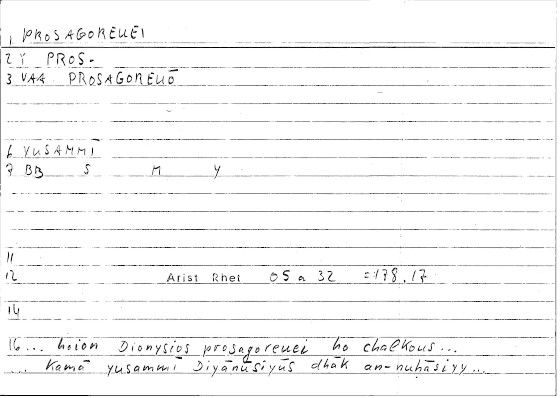 1 PROSAGOREUEI
2 Y PROS-
3 VAA PROSAGOREUŌ
6 YUSAMMĪ
7 BB S M Y
11
12 Arist Rhet 05 a 32 =178,17
14
16 ... hoion Dionysios prosagoreuei ho chalkous ...
... Kamā yusammī Diyānūsiyūs dhāk an-nuḥāsiyy ...